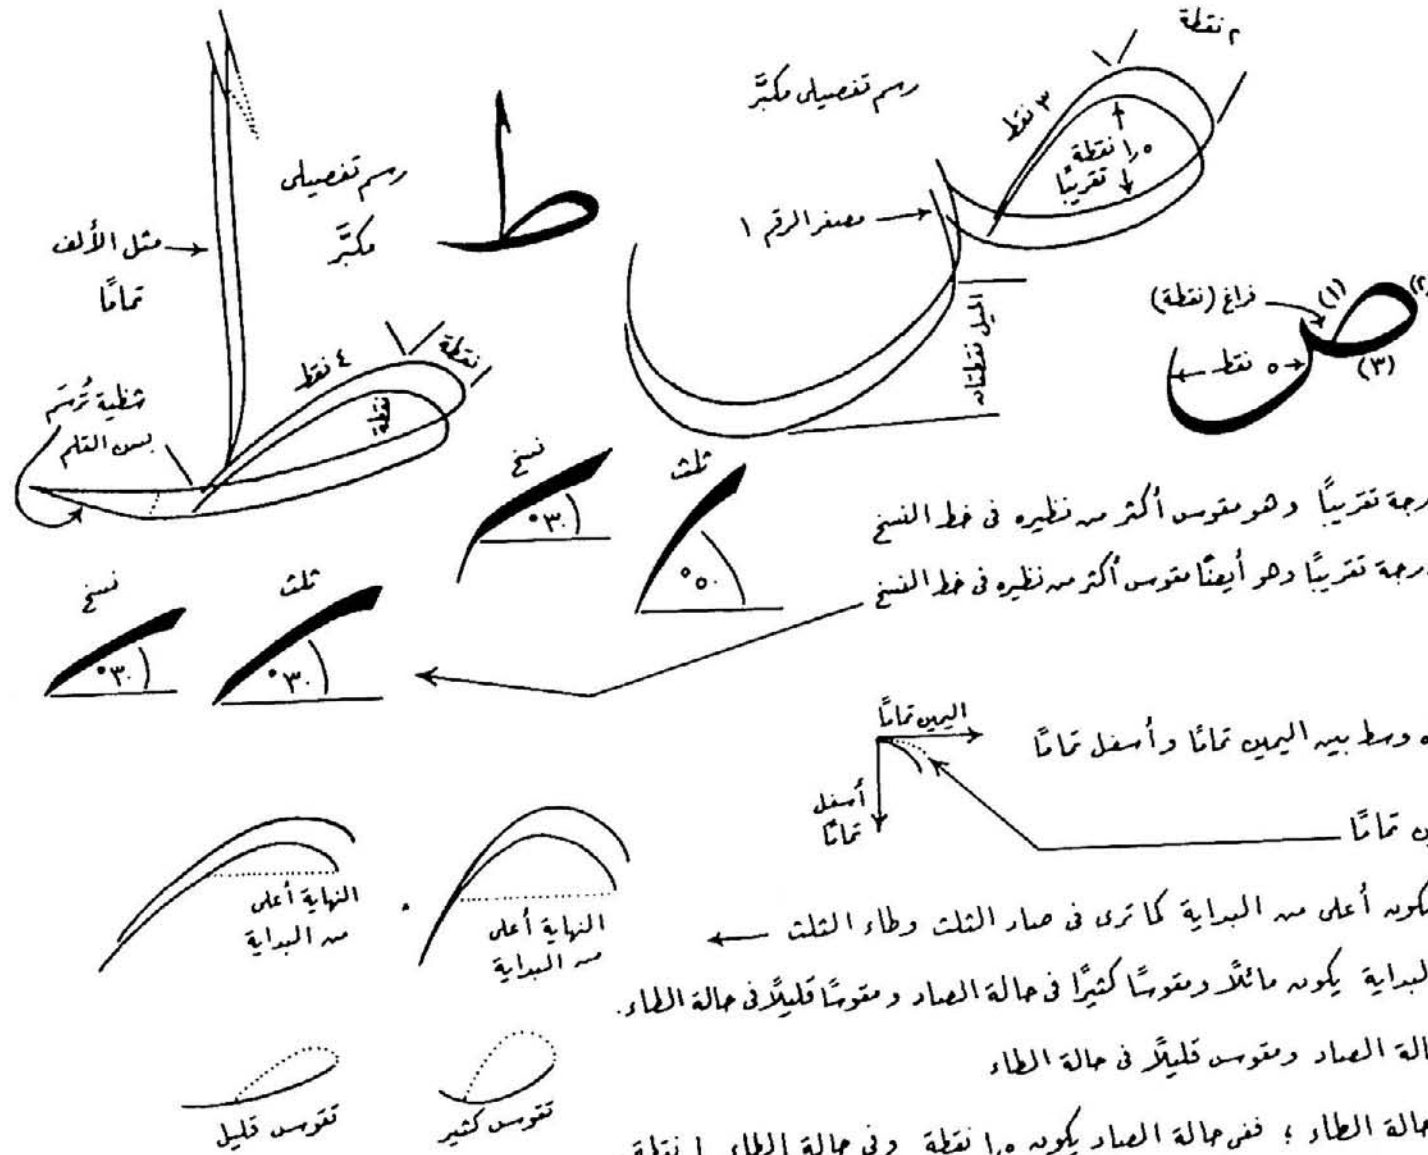 ٢ نقطة
رسم تفصيلى مكبَّر
٣ نقط
١٫٥ نقطة
تقريبًا
رسم تفصيلى
مكبَّر
مثل الألف
تمامًا
مصغر الرقم ١
الميل نقطتان
فراغ (نقطة)
(١)
(٢)
(٣)
٥ نقط
٤ نقط
نقطة
نقطة
شظية تُرسَم
بسن القلم
نسخ
ثلث
٣٠°
٥٠°
رجة تقريبًا وهو مقوس أكثر من نظيره فى خط النسخ
درجة تقريبًا وهو أيضًا مقوس أكثر من نظيره فى خط النسخ
نسخ
ثلث
٣٠°
٣٠°
اليمين تمامًا
أسفل
تمامًا
وسط بين اليمين تمامًا وأسفل تمامًا
ن تمامًا
النهاية أعلى
من البداية
النهاية أعلى
من البداية
يكون أعلى من البداية كما ترى فى صاد الثلث وطاء الثلث
البداية يكون مائلًا ومقوسًا كثيرًا فى حالة الصاد ومقوسًا قليلًا فى حالة الطاء.
الة الصاد ومقوس قليلًا فى حالة الطاء
تقوس كثير
تقوس قليل
حالة الطاء ؛ ففى حالة الصاد يكون ١٫٥ نقطة وفى حالة الطاء ١ نقطة